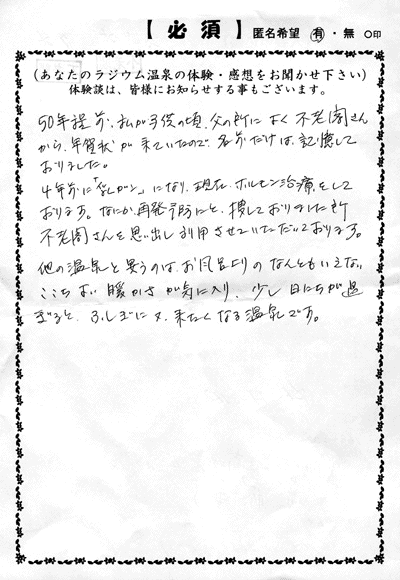 【必須】 匿名希望 有・無 ○印
(あなたのラジウム温泉の体験・感想をお聞かせ下さい)
体験談は、皆様にお知らせする事もございます。
50年程前、私が子供の頃、父の所によく不老閣さん
から、年賀状が来ていたので、名前だけは、記憶して
おりました。
4年前に「乳ガン」になり、現在ホルモン治療をして
おります。なにか再発予防にと、捜しておりました所
不老閣さんを思い出し利用させていただいております。
他の温泉と異うのは、お風呂上りのなんともいえない
ここちよい暖かさが気に入り、少し日にちが過
ぎると、ふしぎに又、来たくなる温泉です。